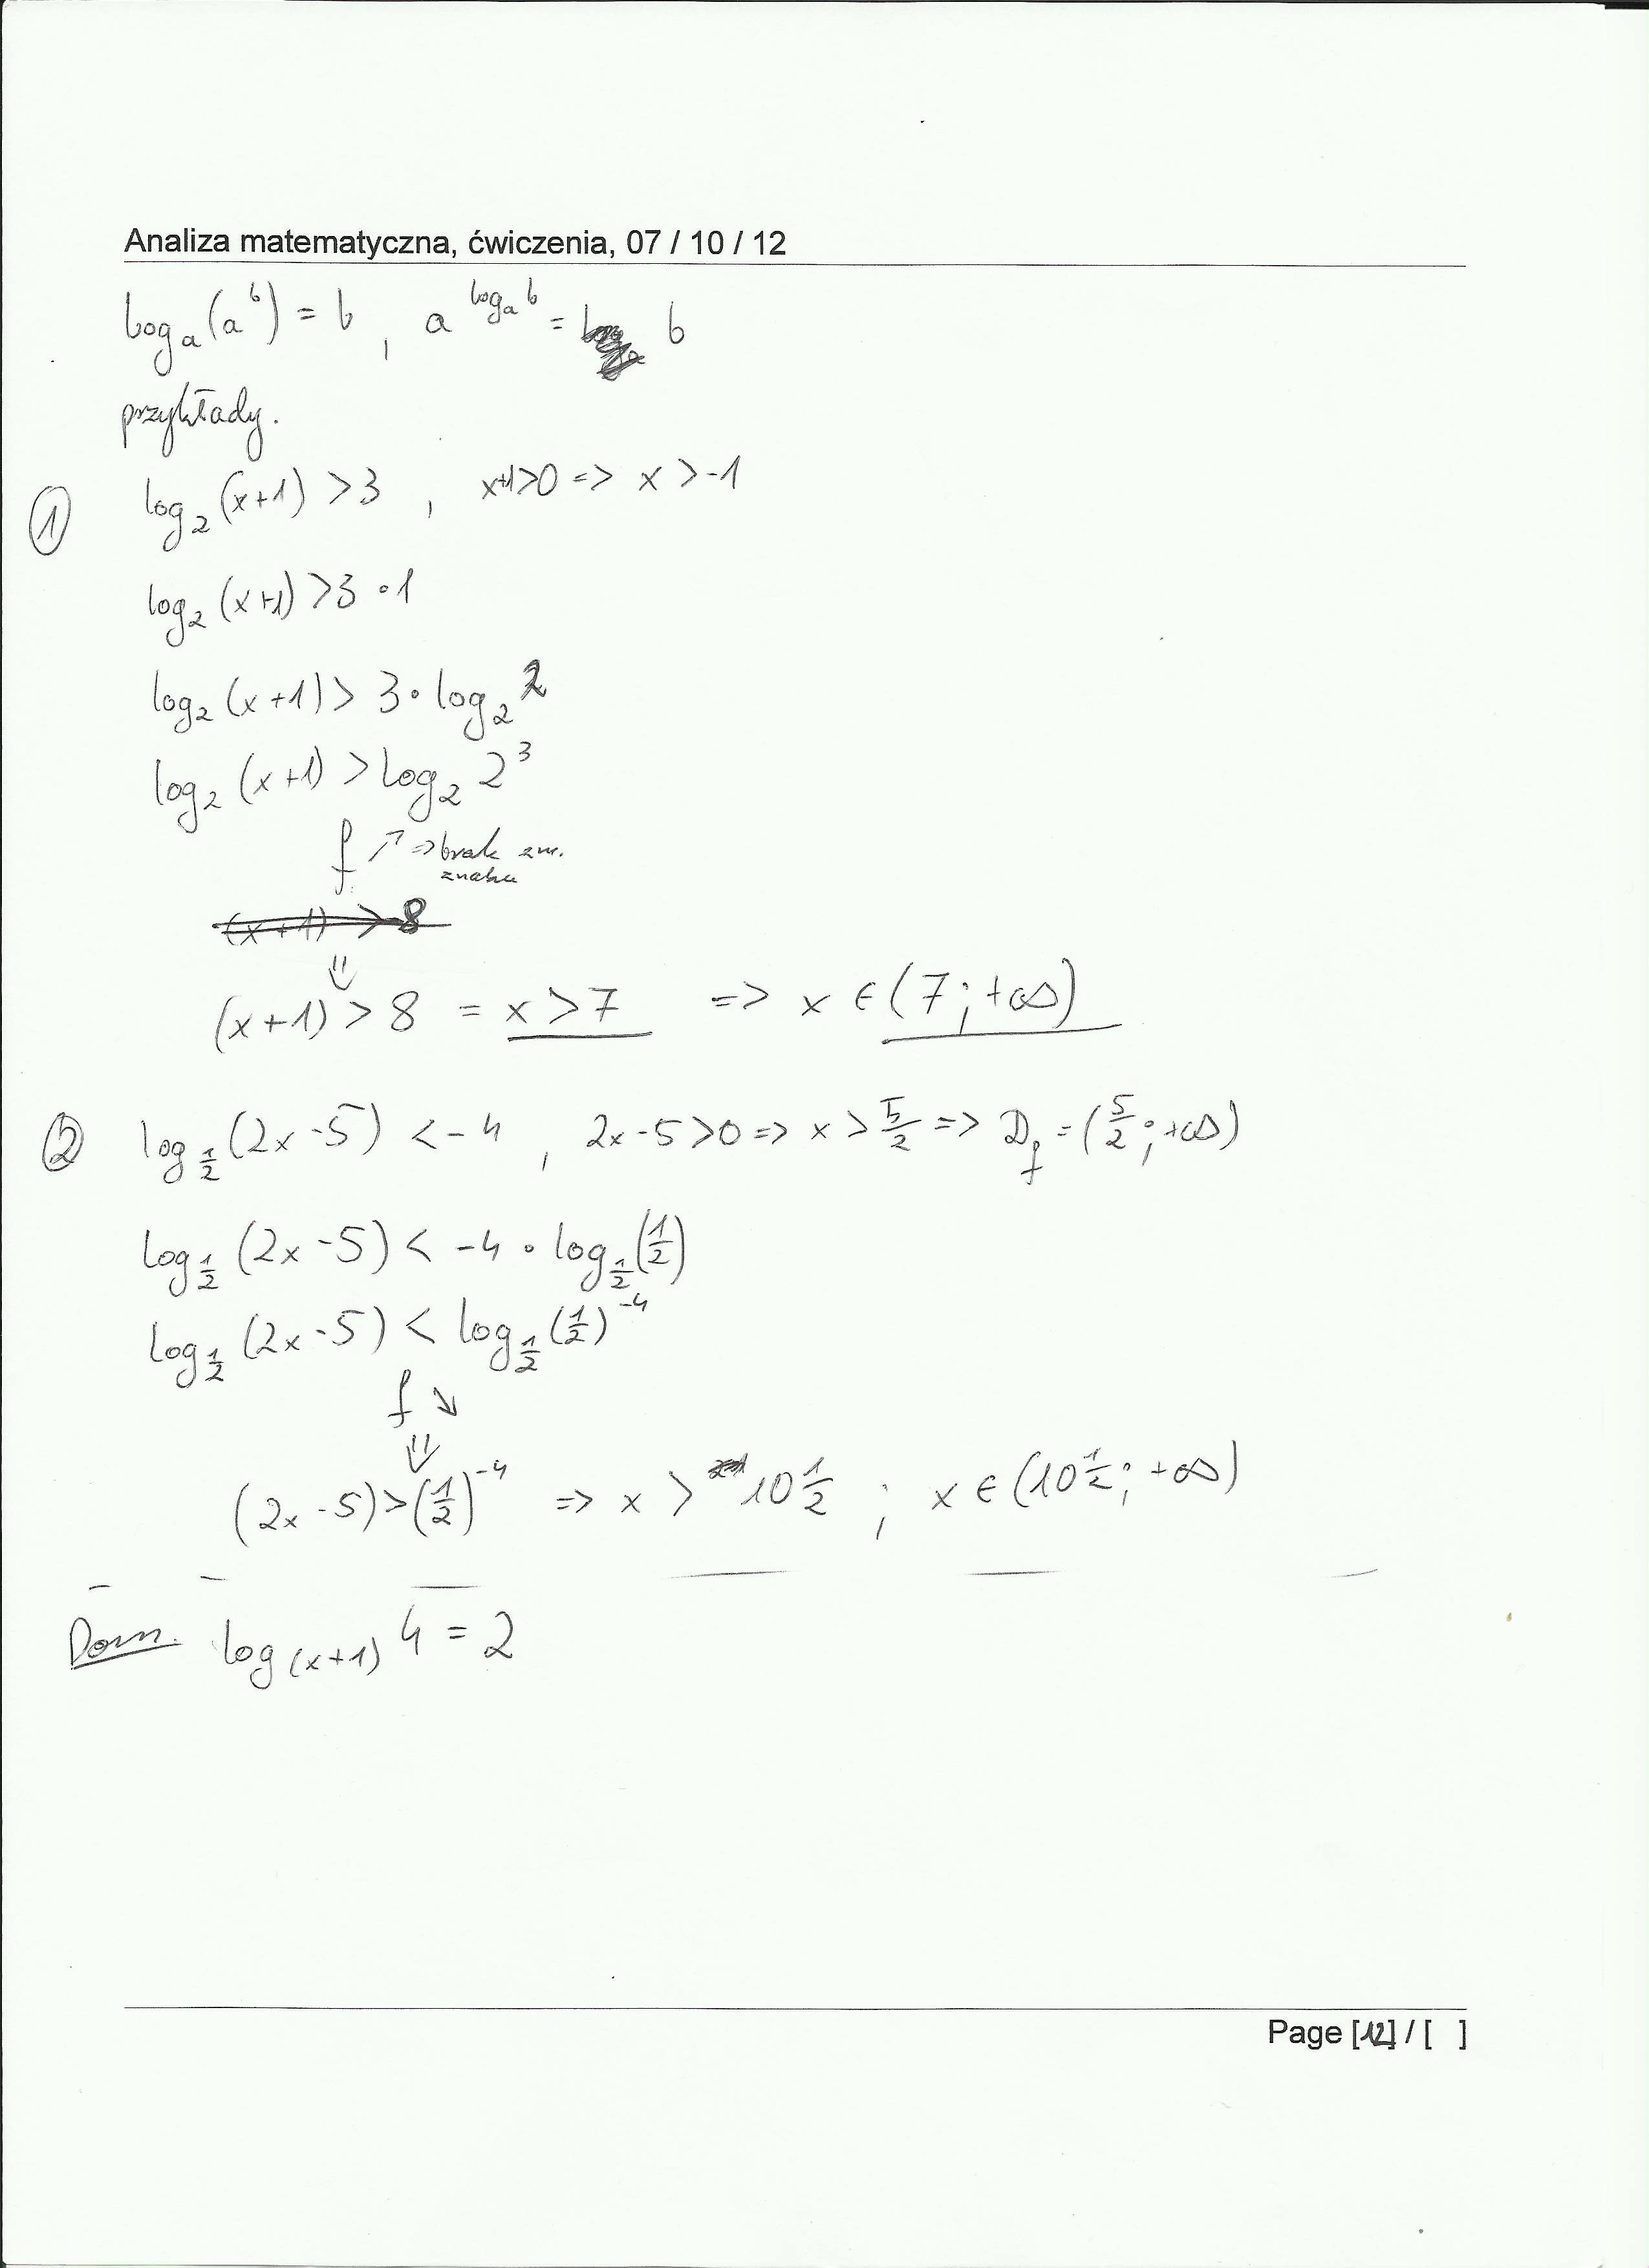 Analiza matematyczna, ćwiczenia, 07 / 10 / 12
logₐ(aᵇ) = b , a^(logₐ b) = b
przykłady.
① log₂(x+1) > 3 , x+1>0 => x > -1
log₂(x+1) > 3 • 1
log₂(x+1) > 3 • log₂ 2
log₂(x+1) > log₂ 2³
f ↗ => brak zm.
znaku
(x+1) > 8
⇓
(x+1) > 8 = x > 7 => x ∈ (7 ; +∞)
② log_½ (2x - 5) < -4 , 2x - 5 > 0 => x > 5/2 => D_f = (5/2 ; +∞)
log_½ (2x - 5) < -4 • log_½ (1/2)
log_½ (2x - 5) < log_½ (1/2)⁻⁴
f ↘
⇓
(2x - 5) > (1/2)⁻⁴ => x > 10 1/2 ; x ∈ (10 1/2 ; +∞)
Dom. log_(x+1) 4 = 2
Page [12] / [ ]